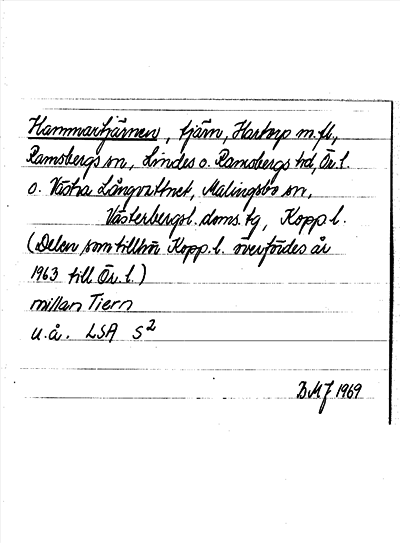 Hammartjärnen, tjärn, Hartorp m.fl.,
Ramsbergs sn, Lindes o. Ramsbergs hd, Ör. l.
o. Västra Långvattnet, Malingsbo sn,
Västerbergsl. doms. tg, Kopp l.
(Delen som tillhör Kopp. l. överfördes år
1963 till Ör. l.)
millan Tiern
u.å. LSA S²
BMJ 1969